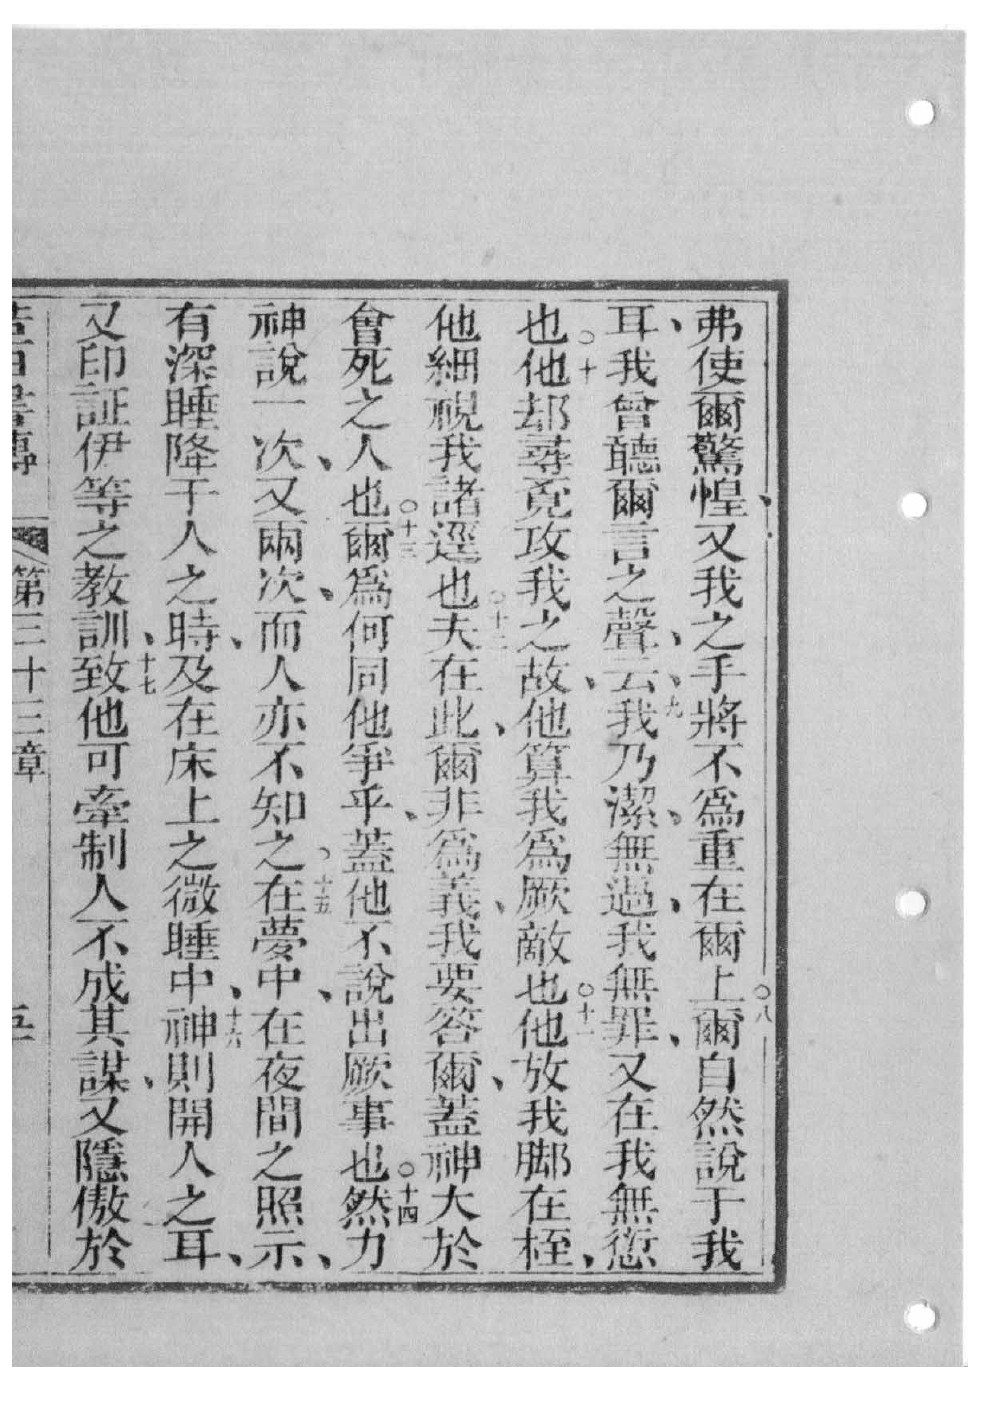 弗使爾驚惶、又我之手將不爲重在爾上○八爾自然說于我
耳、我曾聽爾言之聲、云、九我乃潔、無過、我無罪、又在我無愆
也○十他却尋竟攻我之故、他算我爲厥敵也○十一他放我脚在桎、
他細視我諸逕也○十二夫在此、爾非爲義、我要答爾、蓋神大於
會死之人也○十三爾爲何同他爭乎、蓋他不說出厥事也○十四然力
神說一次、又兩次、而人亦不知之、十五在夢中、在夜間之照示、
有深睡降于人之時、及在床上之微睡中、十六神則開人之耳、
又印証伊等之教訓、十七致他可牽制人不成其謀、又隱傲於
書傳 第三十三章 五